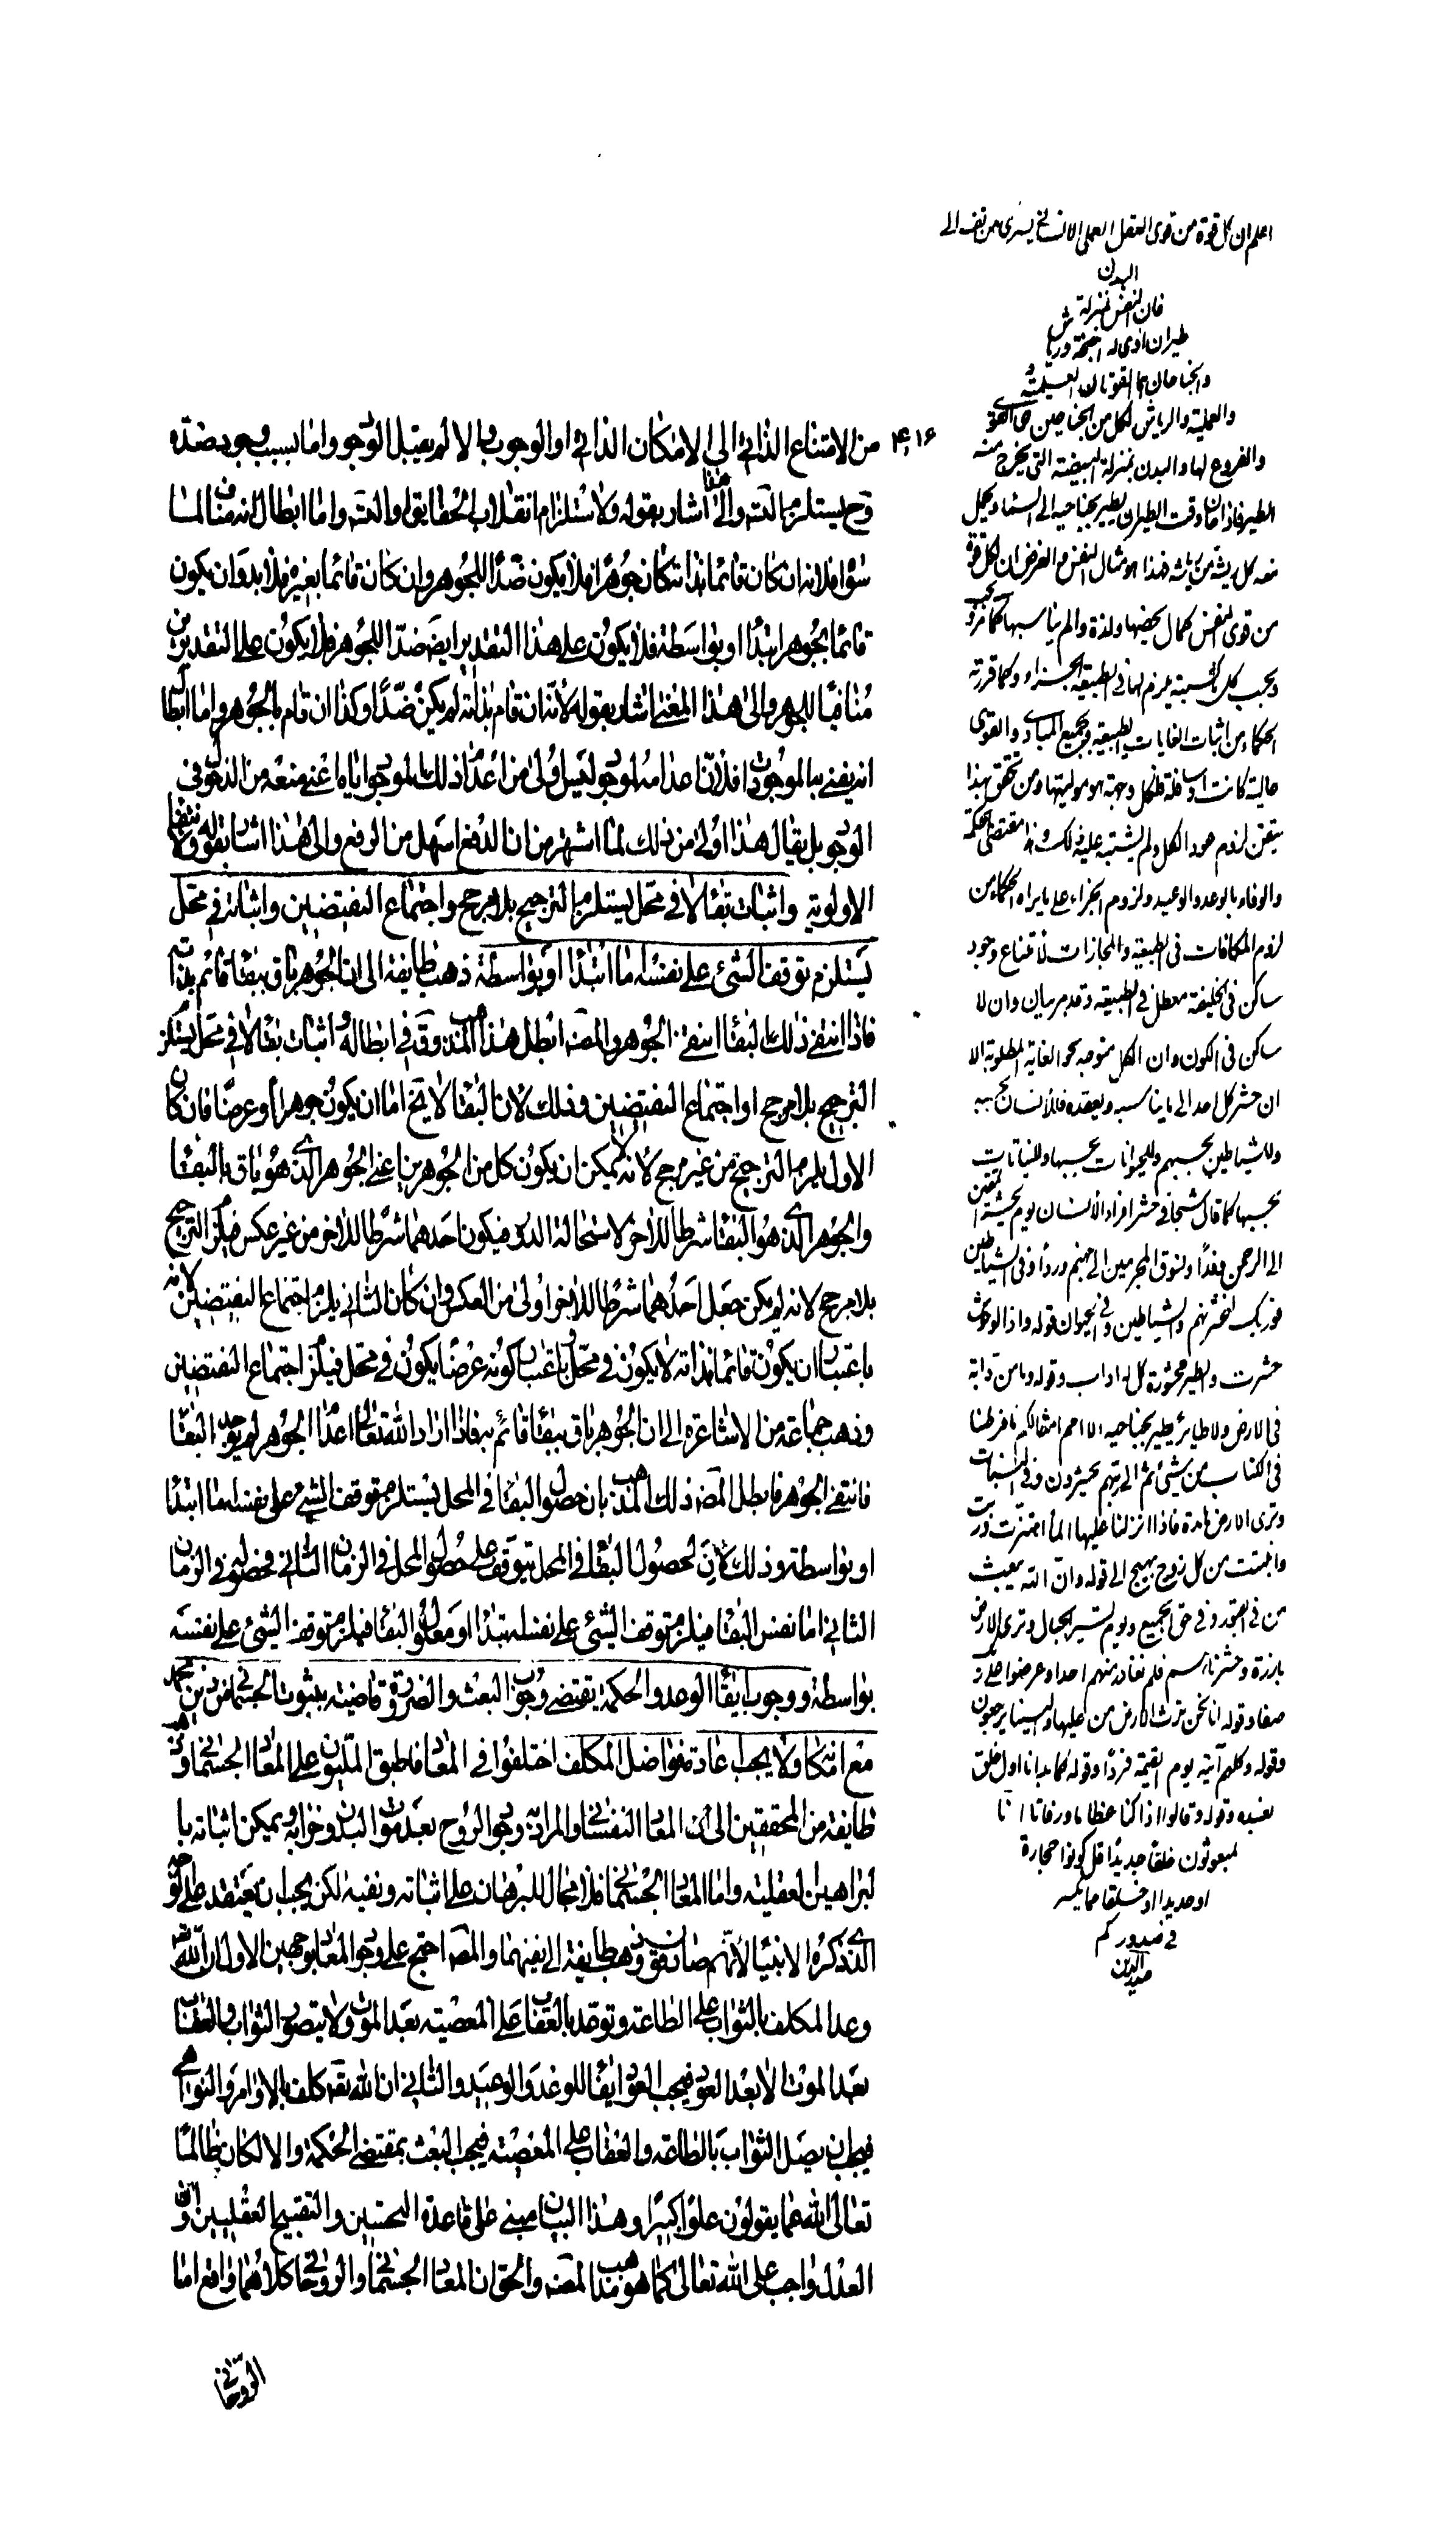 ۴۱۶
من الامتناع الذاتي الى الامكان الذاتي او الوجوب والا لم يقبل الوجود واما بسبب وجود ضده
وح يستلزم التسلسل والى هذا اشار بقوله ولاستلزام انقلاب الحقايق او التسلسل واما ابطال انه مناف لما
سواه فلانه ان كان قائما بذاته كان جوهرا فلا يكون ضدا للجوهر وان كان قائما بغيره فلا بد وان يكون
قائما بجوهر ابتداء او بواسطة فلا يكون على هذا التقدير ايضا ضدا للجوهر فلا يكون على التقديرين
منافيا للجوهر والى هذا المعنى اشار بقوله لأنه ان قام بذاته لم يكن ضدا وكذا ان قام بالجوهر واما ابطال
انه يفنى بالموجود فلان اعدامه للموجود ليس اولى من اعدام ذلك الموجود اياه اعني منعه من الدخول في
الوجود بل يقال هذا اولى من ذلك لما اشتهر من ان الدفع اسهل من الرفع والى هذا اشار بقوله ولانتفاء
الاولوية واثبات بقاء لا في محل يستلزم الترجيح بلا مرجح واجتماع النقيضين واثباته في محل
يستلزم توقف الشئ على نفسه اما ابتداء او بواسطة ذهب طايفة الى ان الجوهر باق ببقاء قائم بذاته
فاذا انتفى ذلك البقاء انتفى الجوهر والمصنف ابطل هذا المذهب وقال في ابطاله اثبات بقاء لا في محل يستلزم
الترجيح بلا مرجح او اجتماع النقيضين وذلك لان البقاء لا يخ اما ان يكون جوهرا او عرضا فان كان
الاول يلزم الترجيح من غير مرجح لأنه لا يمكن ان يكون كل من الجوهرين اعني الجوهر الذي هو باق بالبقاء
والجوهر الذي هو البقاء شرطا للاخر لاستحالة الدور فيكون احدهما شرطا للاخر من غير عكس فيلزم الترجيح
بلا مرجح لانه لم يكن جعل احدهما شرطا للاخر اولى من العكس وان كان الثاني يلزم اجتماع النقيضين لانه
باعتبار ان يكون قائما بذاته لا يكون في محل وباعتبار كونه عرضا يكون في محل فيلزم اجتماع النقيضين
وذهب جماعة من الاشاعرة الى ان الجوهر باق ببقاء قائم به فاذا اراد الله تعالى اعدام الجوهر لم يوجد البقاء
فانتفى الجوهر فابطل المصنف ذلك المذهب بان حصول البقاء في المحل يستلزم توقف الشئ على نفسه اما ابتداء
او بواسطة وذلك لان حصول البقاء في المحل يتوقف على حصول المحل في الزمان الثاني فحصوله في الزمان
الثاني اما نفس البقاء فيلزم توقف الشئ على نفسه ابتداء او معلول البقاء فيلزم توقف الشئ على نفسه
بواسطة ووجوب ايفاء الوعد والحكمة يقتضي وجوب البعث والضرورة قاضية بثبوت الجسماني من دين محمد
مع امكانه ولا يجب اعادة فواضل المكلف اختلفوا في المعاد فاطبق المليون على المعاد الجسماني وذهب
طايفة من المحققين الى ان المعاد النفساني والمراد به وجود الروح بعد موت البدن وخرابه ويمكن اثباته با
لبراهين العقلية واما المعاد الجسماني فلا مجال للبرهان على اثباته ونفيه لكن يجب ان يعتقد على الوجه
الذي ذكره الانبياء لأنهم صادقون وذهب طايفة الى نفيهما والمصنف احتج على وجود المعاد بوجهين الاول ان الله
وعد المكلف بالثواب على الطاعة وتوعد بالعقاب على المعصية بعد الموت ولا يتصور الثواب والعقاب
بعد الموت الا بعد العود فيجب العود ايفاء للوعد والوعيد والثاني ان الله تعالى كلف بالاوامر والنواهي
فيجب ان يصل الثواب بالطاعة والعقاب على المعصية فيجب البعث بمقتضى الحكمة والا لكان ظالما
تعالى الله عما يقولون علوا كبيرا وهذا البيان مبني على قاعدة التحسين والتقبيح العقليين وان
العدل واجب على الله تعالى كما هو مذهب المصنف والحق ان المعاد الجسماني والروحاني كلاهما واقع اما
الروحاني
اعلم ان كل قوة من قوى العقل العملي الانساني يسرى من نفسه الى
البدن
فان النفس بمنزلة
طيران اوى له اجنحة ورياش
والجناحان هما القوتان العلمية
والعملية والرياش لكل من الجناحين هي القوى
والفروع لها والبدن بمنزلة البيضة التي يخرج منه
الطير فاذا حان وقت الطيران يطير بجناحيه الى السماء ويحمل
معه كل ريشة من رياشه هذا هو مثال النفس والغرض ان لكل قوة
من قوى النفس كمال يخصها ولذة والم يناسبها كما مر
وبحسب كل ما كسبته يلزم لها في الطبيعة الجزاء وكما قررته
الحكماء من اثبات الغايات الطبيعية لجميع المبادى والقوى
عالية كانت او سافلة فلكل وجهة هو موليها ومن تحقق بهذا
تيقن لزوم عود الكل ولم يشتبه عليه ذلك وهذا مقتضى الحكمة
والوفاء بالوعد والوعيد ولزوم الجزاء على ما يراه الحكماء من
لزوم المكافات في الطبيعة والمجازات لامتناع وجود
ساكن في الخليقة معطل في الطبيعة وقد مر بيان وان لا
ساكن في الكون وان الكل متوجه نحو الغاية المطلوبة الا
ان حشر كل احد الى ما يناسبه ويقصده فللانسان بحسبه
وللشياطين بحسبهم وللحيوانات بحسبها وللنباتات
بحسبها كما قال سبحانه في حشر افراد الانسان يوم نحشر المتقين
الى الرحمن وفدا ونسوق المجرمين الى جهنم وردا وفي الشياطين
فوربك لنحشرنهم والشياطين وفي الحيوان قوله واذا الوحوش
حشرت والطير محشورة كل له اواب وقوله وما من دابة
في الارض ولا طائر يطير بجناحيه الا امم امثالكم ما فرطنا
في الكتاب من شئ ثم الى ربهم يحشرون وفي النبات
وترى الارض هامدة فاذا انزلنا عليها الماء اهتزت وربت
وانبتت من كل زوج بهيج الى قوله وان الله يبعث
من في القبور وفي حق الجميع ويوم نسير الجبال وترى الارض
بارزة وحشرناهم فلم نغادر منهم احدا وعرضوا على ربك
صفا وقوله انا نحن نرث الارض ومن عليها والينا يرجعون
وقوله وكلهم آتيه يوم القيمة فردا وقوله كما بدانا اول خلق
نعيده وقوله وقالوا اذا كنا عظاما ورفاتا ائنا
لمبعوثون خلقا جديدا قل كونوا حجارة
او حديدا او خلقا مما يكبر
في صدوركم
صدر الدين